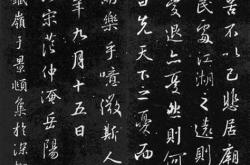 喜不以己悲居廟
民處江湖之遠則
憂退亦憂然則何
曰先天下之憂而
樂乎噫微斯人
年九月十五日
宋范仲淹岳陽
嶺于景頫集於深